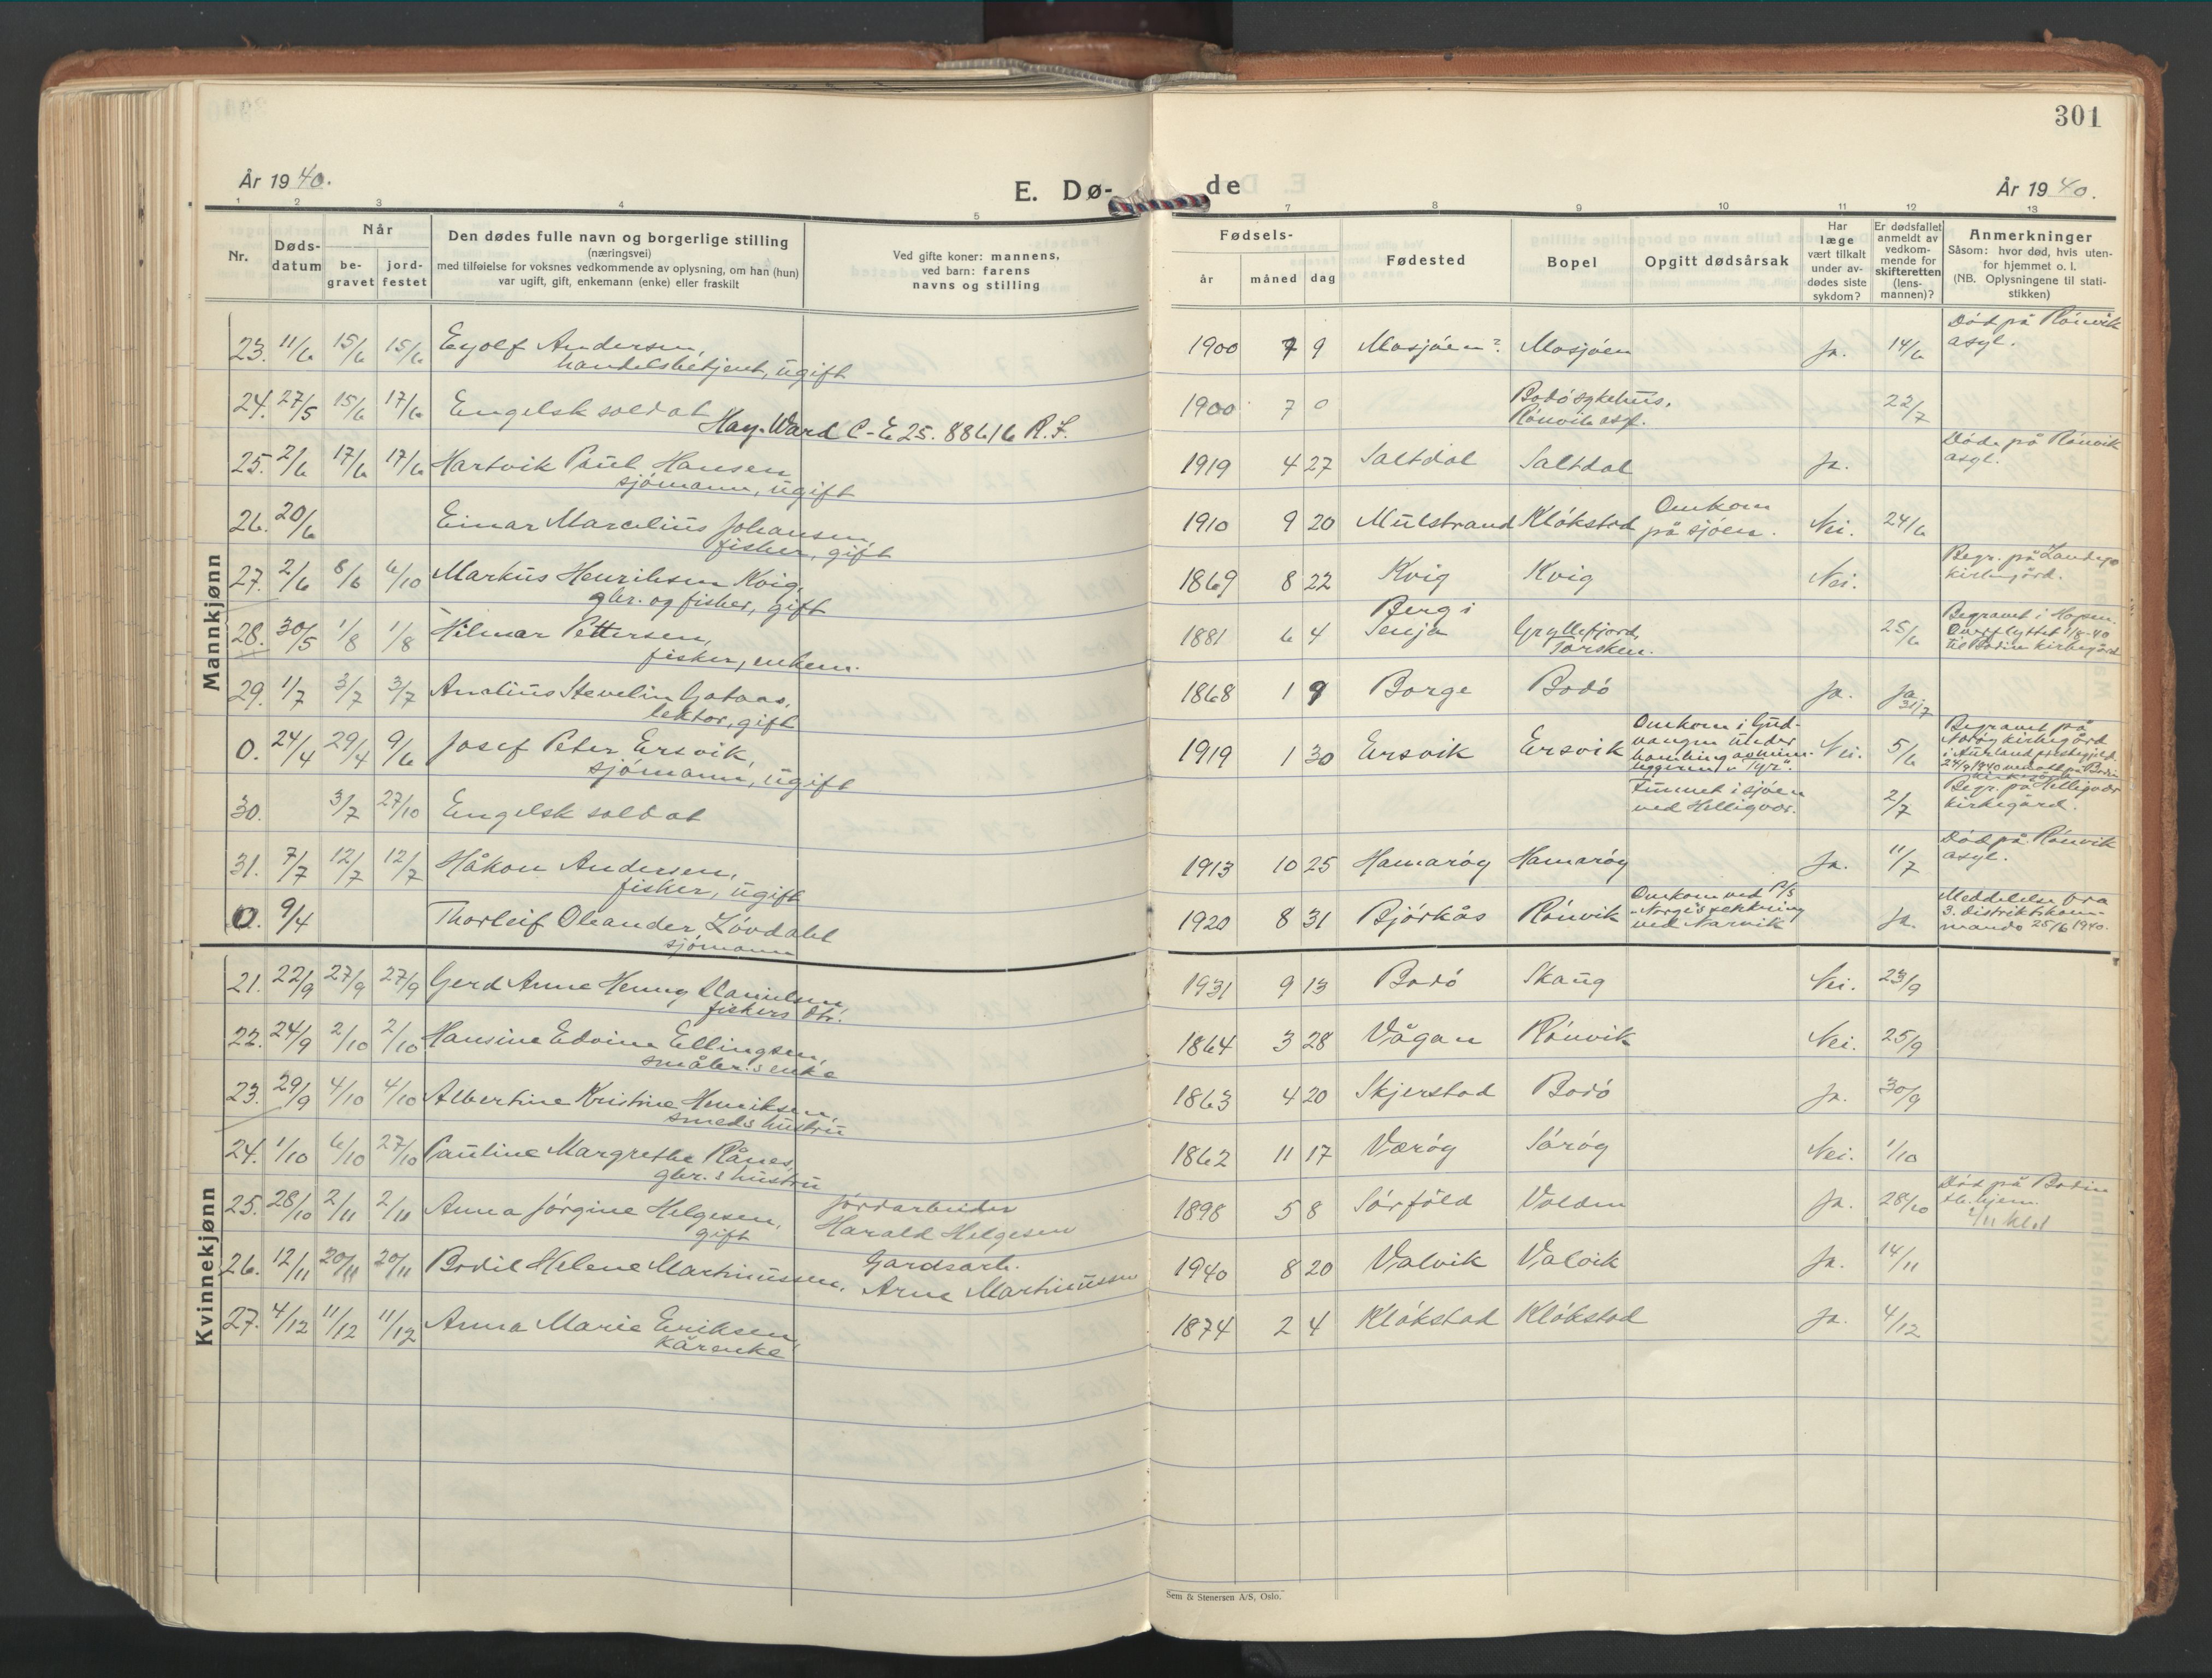 301
År 1940.
E. Dø-
de
År 1940.
1 2 3 4 5 7 8 9 10 11 12 13
Nr.
Døds-
datum
Når
be-
gravet
jord-
festet
Den dødes fulle navn og borgerlige stilling
(næringsvei)
med tilføielse for voksnes vedkommende av oplysning, om han (hun)
var ugift, gift, enkemann (enke) eller fraskilt
Ved gifte koner: mannens,
ved barn: farens
navns og stilling
Fødsels-
år måned dag
Fødested
Bopel
Opgitt dødsårsak
Har
læge
vært tilkalt
under av-
dødes siste
sykdom?
Er dødsfallet
anmeldt av
vedkom-
mende for
skifteretten
(lens-
mannen)?
Anmerkninger
Såsom: hvor død, hvis uten-
for hjemmet o. l.
(NB. Oplysningene til stati-
stikken)
Mannkjønn
23. 11/6 15/6 15/6 Eyolf Andersen,
handelsbetjent, ugift
1900 7 9 Mosjöen? Mosjöen Ja. 14/6
Död på Rönvik
asyl.
24. 27/5 15/6 17/6 Engelsk soldat
Hay-Ward C-E25. 88616 R.F.
1900 7 0
Bodö sykehus,
Rönvik asyl.
22/7
25. 2/6 17/6 17/6 Hartvik Paul Hansen
sjömann, ugift
1919 4 27 Saltdal Saltdal Ja.
Döde på Rönvik
asyl.
26. 20/6 Einar Marcelius Johansen,
fisker, gift
1910 9 20 Mulstrand Klökstad
Omkom
på sjöen.
Nei. 24/6
27. 2/6 8/6 6/10 Markus Henriksen Kvig,
gbr. og fisker, gift
1869 8 22 Kvig Kvig Nei.
Begr. på Landego
kirkegård.
28. 30/5 1/8 1/8 Hilmar Pettersen,
fisker, enkem.
1881 6 4
Berg i
Senja
Gryllefjord,
Torsken.
25/6
Begravet i Hopen.
Overflyttet 1/8-40
til Bodin kirkegård
29. 1/7 3/7 3/7 Analius Stevelin Gataas,
lektor, gift
1868 1 9 Borge Bodö Ja. Ja
31/7
0. 24/4 29/4 9/6 Josef Peter Ersvik,
sjömann, ugift
1919 1 30 Ersvik Ersvik
Omkom i Gud-
vangen under
homling av minn-
liggeren "Tyr".
Nei. 5/6
Begravet på
kirkegård
i Aurland prestegjeld.
30. 3/7 27/10 Engelsk soldat
Funnet i sjöen
ved Helligvær.
2/7
Begr. på Helligvær
kirkegård.
31. 7/7 12/7 12/7 Håkon Andersen,
fisker, ugift
1913 10 25 Hamaröy Hamaröy Ja. 11/7
Död på Rönvik
asyl.
0. 9/4 Thorleif Oleander Lövdahl
sjömann
1920 8 31 Björkås Rönvik
Omkom ved P/S
"Norge"s senkning
ved Narvik
Ja.
Meddelelse fra
3. distriktskom-
mando 25/6 1940.
Kvinnekjønn
21. 22/9 27/9 27/9 Gerd Anne Henny Danielsen,
fiskers dtr.
1931 9 13 Bodö Skaug Nei. 23/9
22. 24/9 2/10 2/10 Hansine Edvine Ellingsen,
småbr.s enke
1864 3 28 Vågan Rönvik Nei. 25/9
23. 29/9 4/10 4/10 Albertine Kristine Henriksen,
smeds hustru
1863 4 20 Skjerstad Bodö Ja. 30/9
24. 1/10 6/10 27/10 Pauline Margrethe Rånes,
gbr.s hustru
1862 11 17 Væröy Söröy Nei. 1/10
25. 28/10 2/11 2/11 Anna Jörgine Helgesen,
gift
Jordarbeider
Harald Helgesen
1898 5 8 Sörfold Volden Ja. 28/10
Död på Bodin
26. 12/11 20/11 20/11 Bodil Helene Martinussen,
Gardsarb.
Arne Martinussen
1940 8 20 Valvik Valvik Ja. 14/11
27. 4/12 11/12 11/12 Anna Marie Eriksen,
Kårenke
1874 2 4 Klökstad Klökstad Ja. 4/12
Sem & Stenersen A/S, Oslo.